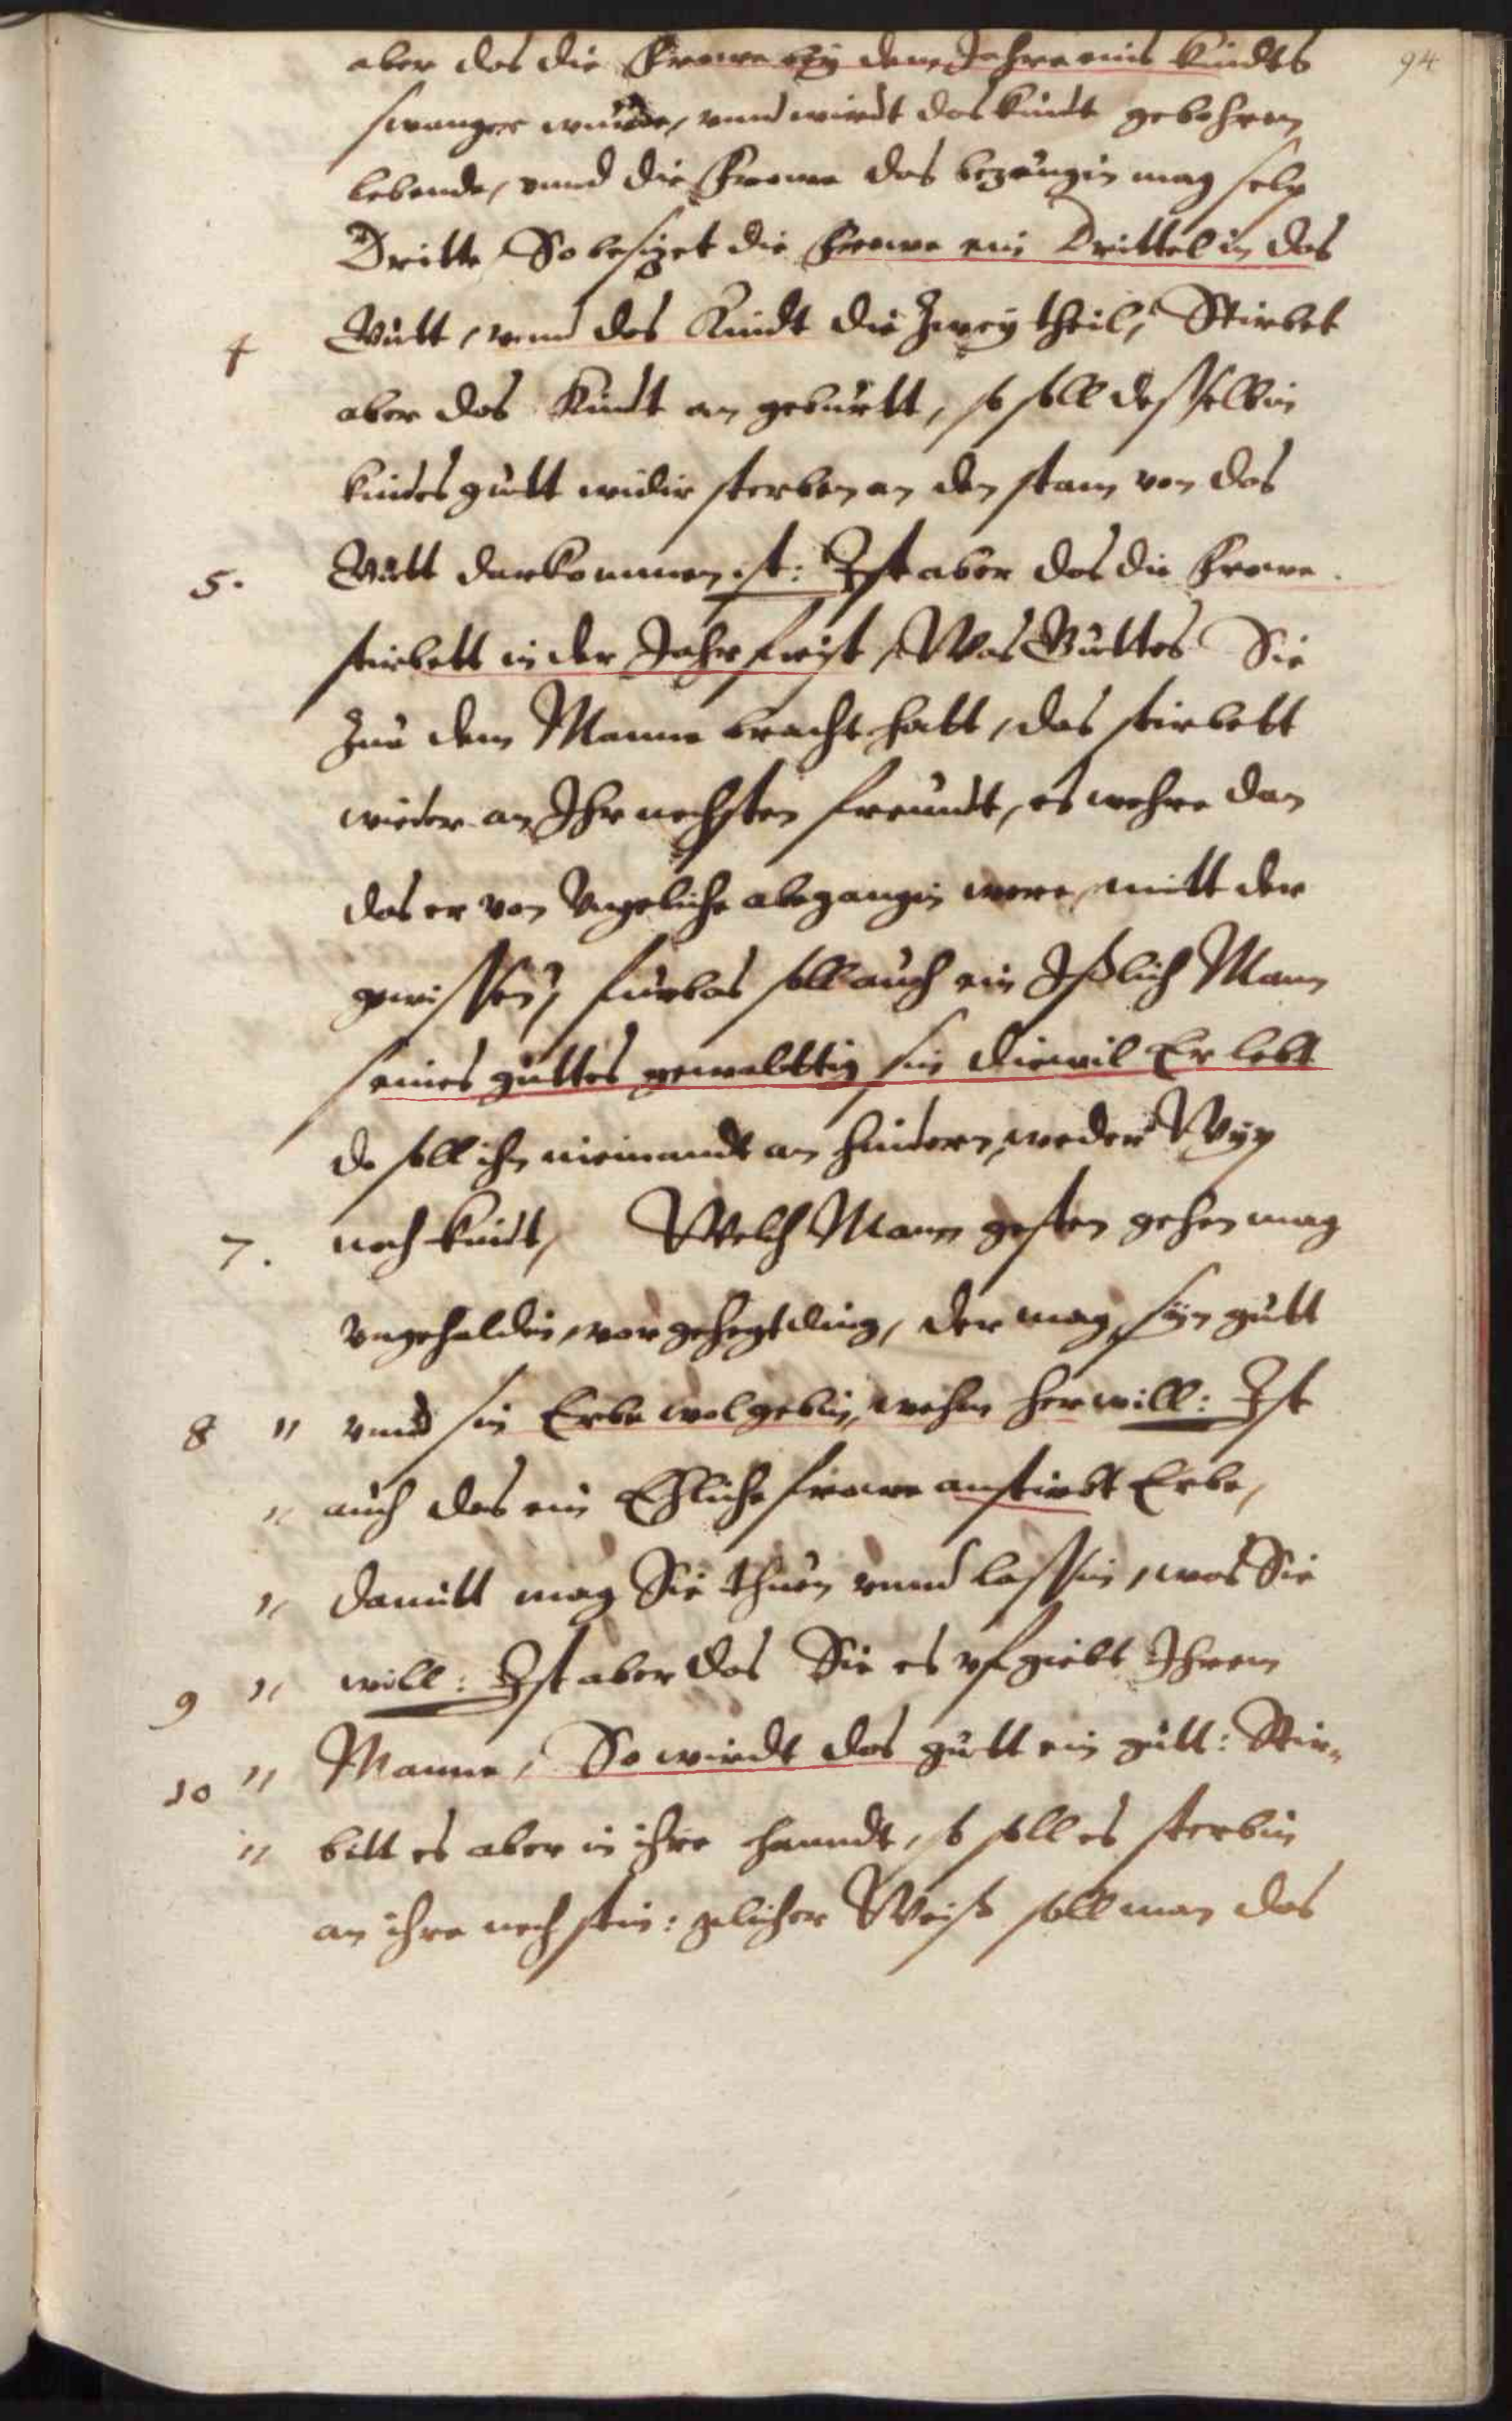 94
aber das die Frawe bÿ dem Jahre eins kindts
swanger wurde, vnnd wirdt das kindt gebohren
lebende, vnnd die Frawe das bezeugin mag selp
Dritte, So besizet die Frawe ein Drittel in das
4 Gutt, vnnd des Kindt die Zweÿ theil, Stirbet
aber das Kindt an geburtt, so soll desselbin
kindes gutt widir sterben an den stam von das
5. Gutt darkommen ist: Ist aber das die Frawe
stirbett in der Jahrfrist, Was Guttes Sie
zue dem Manne bracht hatt, das stirbett
wieder an Ihr nechsten freundt, es wehre dan
das er von Vngeliche abegangin were, mitt der
gewissen, furbas soll auch ein Ißlich Mann
seines guttes gewalttig sin diewil Er lebt
do soll ihn niemandt an hindern, weder Wÿp
7. noch kindt, Welch Mann gesten gehen mag
vngehaldin, vor gehegt ding, der mag sÿn gutt
8 " vnnd sin Erbe wol gebin, wehm her will: Ist
" auch das ein Ehliche frawe anstirbt Erbe,
" damitt mag Sie thuen vnnd lassin, was Sie
9 " will: Ist aber das Sie es vfgiebt Ihrem
10 " Manne, So wirdt das gutt ein gutt: Stir„
" bett es aber in ihre hanndt, so soll es sterbin
an ihre nechstin: glicher Weiß soll man das